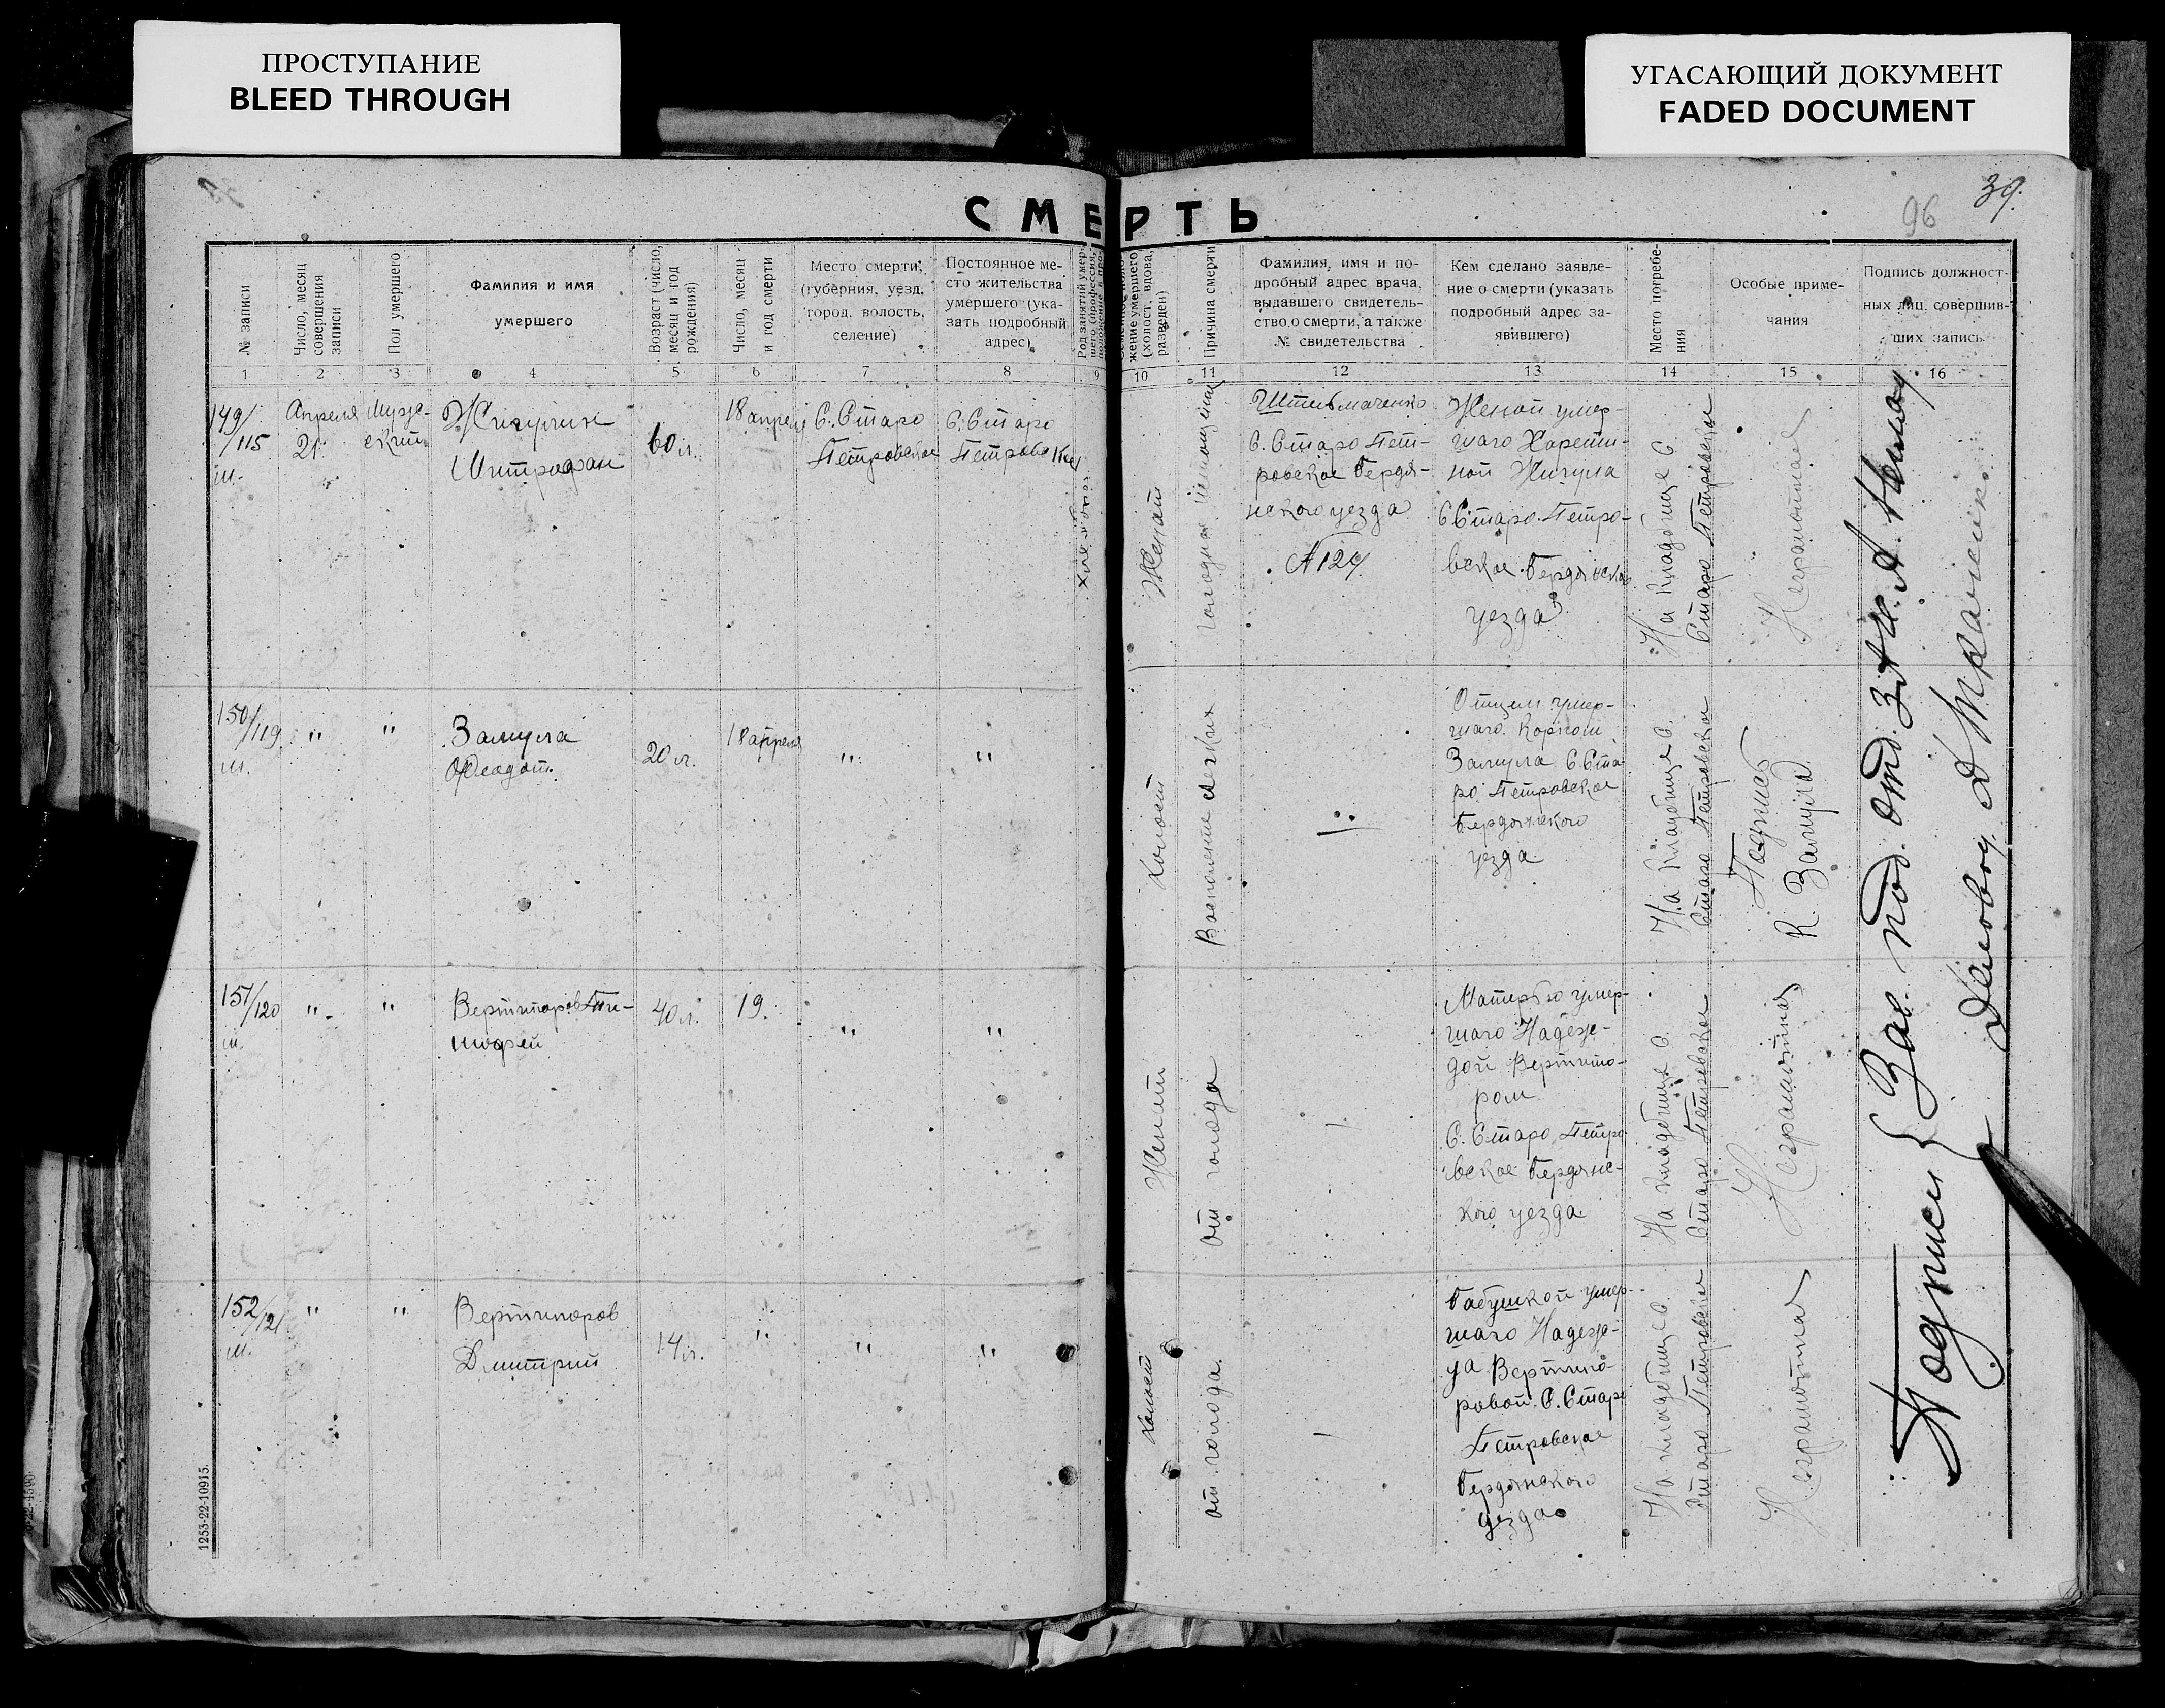 ПРОСТУПАНИЕ
BLEED THROUGH
УГАСАЮЩИЙ ДОКУМЕНТ
FADED DOCUMENT
39.
96
СМЕРТЬ
№ записи
Число, месяц
совершения
записи
Пол умершего
Фамилия и имя
умершего
Возраст (число,
месяц и год
рождения)
Число, месяц
и год смерти
Место смерти,
(губерния, уезд,
город, волость,
селение)
Постоянное ме-
сто жительства
умершего (ука-
зать подробный
адрес)
Род занятий умер-
шего (профессия,
жение умершего
(холост, вдова,
разведен)
Причина смерти
Фамилия, имя и по-
дробный адрес врача,
выдавшего свидетель-
ство о смерти, а также
№ свидетельства
Кем сделано заявле-
ние о смерти (указать
подробный адрес за-
явившего)
Место погребе-
ния
Особые приме-
чания
Подпись должност-
ных лиц, совершив-
ших запись
1 2 3 4 5 6 7 8 9 10 11 12 13 14 15 16
149/
/115
м.
Апреля
21
Муже-
ский
Жигулин
Митрофан
60 л.
18 апреля
С. Старо
Петровское
С. Старо
Петровское
Хлебороб
Женат
Штельмаченко
С. Старо Пет-
ровское Бердя-
нского уезда
№ 129
Женой умер-
шаго Харити-
ной Жигула
С Старо Петро-
вское Бердянска
уезда
На кладбище С.
Старо Петровски
Неграмотная
150/119
м.
" "
Замула
Феодот
20 л.
18 апреля
" "
Холост
Воспаление легких
Отцем умер-
шаго Корнеи
Замула С Ста
ро Петровское
Бердянского
уезда
На кладбище С.
Старо Петровски
Подписал
К. Замула
151/120
м.
" "
Вертипоров Ти-
мофей
40 л.
19.
" "
Женат
от голода
Матерью умер-
шаго Надеж-
дой Вертипо-
ром
С. Старо Петро
вское Бердянс-
кого уезда
На кладбище С.
Старо Петровски
Неграмотная
152/121
м.
" "
Вертипоров
Дмитрий
14 л.
" " "
Холост
от голода.
Бабушкой умер-
шаго Надеж-
да Вертипо-
ровой С. Старо
Петровское
Бердянского
уезда
На кладбище С.
Старо Петровски
Неграмотная
Подписи { Зав. под. отд. ЗАГС
Деловод
1253-22-10915.